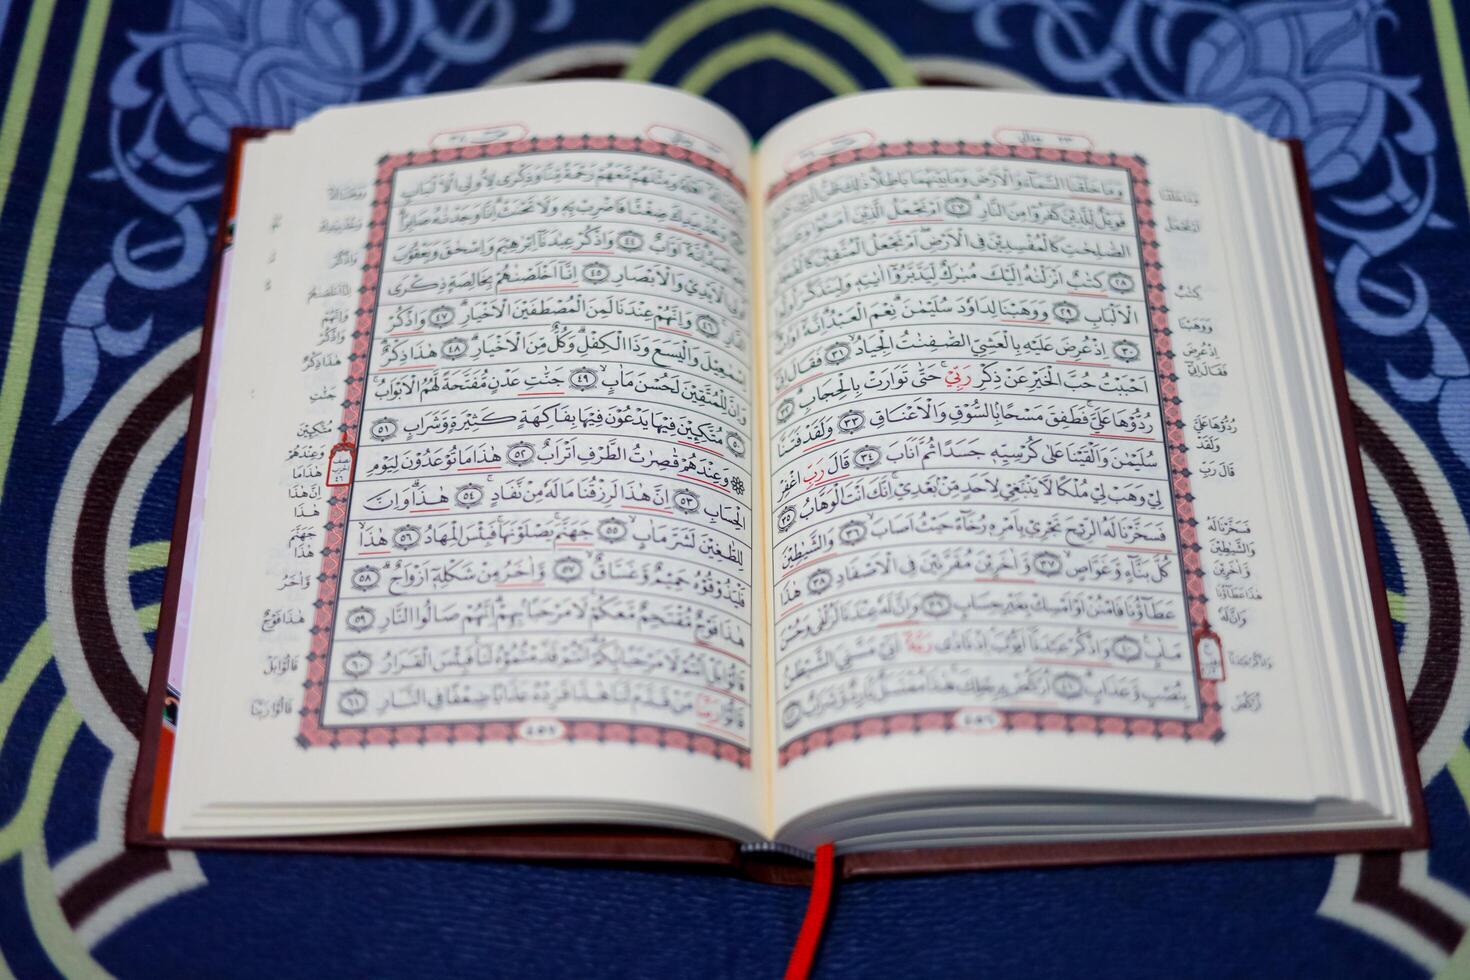 وَمَا خَلَقْنَا السَّمَاءَ وَالْاَرْضَ وَمَا بَيْنَهُمَا بَاطِلًا ذٰلِكَ ظَنُّ الَّذِينَ كَفَرُوا
فَوَيْلٌ لِلَّذِينَ كَفَرُوا مِنَ النَّارِ ٢٧ اَمْ نَجْعَلُ الَّذِينَ اٰمَنُوا وَعَمِلُوا
الصّٰلِحٰتِ كَالْمُفْسِدِينَ فِي الْاَرْضِ اَمْ نَجْعَلُ الْمُتَّقِينَ كَالْفُجَّارِ
٢٨ كِتٰبٌ اَنْزَلْنٰهُ اِلَيْكَ مُبٰرَكٌ لِيَدَّبَّرُوا اٰيٰتِهٖ وَلِيَتَذَكَّرَ اُولُوا
الْاَلْبَابِ ٢٩ وَوَهَبْنَا لِدَاوُدَ سُلَيْمٰنَ نِعْمَ الْعَبْدُ اِنَّهُ اَوَّابٌ
٣٠ اِذْ عُرِضَ عَلَيْهِ بِالْعَشِيِّ الصّٰفِنٰتُ الْجِيَادُ ٣١ فَقَالَ اِنِّي
اَحْبَبْتُ حُبَّ الْخَيْرِ عَنْ ذِكْرِ رَبِّي حَتّٰى تَوَارَتْ بِالْحِجَابِ ٣٢
رُدُّوهَا عَلَيَّ فَطَفِقَ مَسْحًا بِالسُّوقِ وَالْاَعْنَاقِ ٣٣ وَلَقَدْ فَتَنَّا
سُلَيْمٰنَ وَاَلْقَيْنَا عَلٰى كُرْسِيِّهٖ جَسَدًا ثُمَّ اَنَابَ ٣٤ قَالَ رَبِّ اغْفِرْ
لِي وَهَبْ لِي مُلْكًا لَا يَنْبَغِي لِاَحَدٍ مِنْ بَعْدِي اِنَّكَ اَنْتَ الْوَهَّابُ ٣٥
فَسَخَّرْنَا لَهُ الرِّيحَ تَجْرِي بِاَمْرِهٖ رُخَاءً حَيْثُ اَصَابَ ٣٦ وَالشَّيٰطِينَ
كُلَّ بَنَّاءٍ وَغَوَّاصٍ ٣٧ وَاٰخَرِينَ مُقَرَّنِينَ فِي الْاَصْفَادِ ٣٨ هٰذَا
عَطَاؤُنَا فَامْنُنْ اَوْ اَمْسِكْ بِغَيْرِ حِسَابٍ ٣٩ وَاِنَّ لَهُ عِنْدَنَا لَزُلْفٰى وَحُسْنَ
مَاٰبٍ ٤٠ وَاذْكُرْ عَبْدَنَا اَيُّوبَ اِذْ نَادٰى رَبَّهُ اَنِّي مَسَّنِيَ الشَّيْطٰنُ
بِنُصْبٍ وَعَذَابٍ ٤١ اُرْكُضْ بِرِجْلِكَ هٰذَا مُغْتَسَلٌ بَارِدٌ وَشَرَابٌ ٤٢
وَمِثْلَهُمْ مَعَهُمْ رَحْمَةً مِنَّا وَذِكْرٰى لِاُولِي الْاَلْبَابِ
ضِغْثًا فَاضْرِبْ بِهٖ وَلَا تَحْنَثْ اِنَّا وَجَدْنٰهُ صَابِرًا
نِعْمَ الْعَبْدُ اِنَّهُ اَوَّابٌ ٤٤ وَاذْكُرْ عِبٰدَنَا اِبْرٰهِيمَ وَاِسْحٰقَ وَيَعْقُوبَ
اُولِي الْاَيْدِي وَالْاَبْصَارِ ٤٥ اِنَّا اَخْلَصْنٰهُمْ بِخَالِصَةٍ ذِكْرَى
الدَّارِ ٤٦ وَاِنَّهُمْ عِنْدَنَا لَمِنَ الْمُصْطَفَيْنَ الْاَخْيَارِ ٤٧ وَاذْكُرْ
اِسْمٰعِيلَ وَالْيَسَعَ وَذَا الْكِفْلِ وَكُلٌّ مِنَ الْاَخْيَارِ ٤٨ هٰذَا ذِكْرٌ
وَاِنَّ لِلْمُتَّقِينَ لَحُسْنَ مَاٰبٍ ٤٩ جَنّٰتِ عَدْنٍ مُفَتَّحَةً لَهُمُ الْاَبْوَابُ
٥٠ مُتَّكِـِٔينَ فِيهَا يَدْعُونَ فِيهَا بِفَاكِهَةٍ كَثِيرَةٍ وَشَرَابٍ ٥١
وَعِنْدَهُمْ قٰصِرٰتُ الطَّرْفِ اَتْرَابٌ ٥٢ هٰذَا مَا تُوعَدُونَ لِيَوْمِ
الْحِسَابِ ٥٣ اِنَّ هٰذَا لَرِزْقُنَا مَا لَهُ مِنْ نَفَادٍ ٥٤ هٰذَا وَاِنَّ
لِلطّٰغِينَ لَشَرَّ مَاٰبٍ ٥٥ جَهَنَّمَ يَصْلَوْنَهَا فَبِئْسَ الْمِهَادُ ٥٦ هٰذَا
فَلْيَذُوقُوهُ حَمِيمٌ وَغَسَّاقٌ ٥٧ وَاٰخَرُ مِنْ شَكْلِهٖ اَزْوَاجٌ ٥٨
هٰذَا فَوْجٌ مُقْتَحِمٌ مَعَكُمْ لَا مَرْحَبًا بِهِمْ اِنَّهُمْ صَالُوا النَّارِ ٥٩
قَالُوا بَلْ اَنْتُمْ لَا مَرْحَبًا بِكُمْ اَنْتُمْ قَدَّمْتُمُوهُ لَنَا فَبِئْسَ الْقَرَارُ ٦٠
قَالُوا رَبَّنَا مَنْ قَدَّمَ لَنَا هٰذَا فَزِدْهُ عَذَابًا ضِعْفًا فِي النَّارِ ٦١